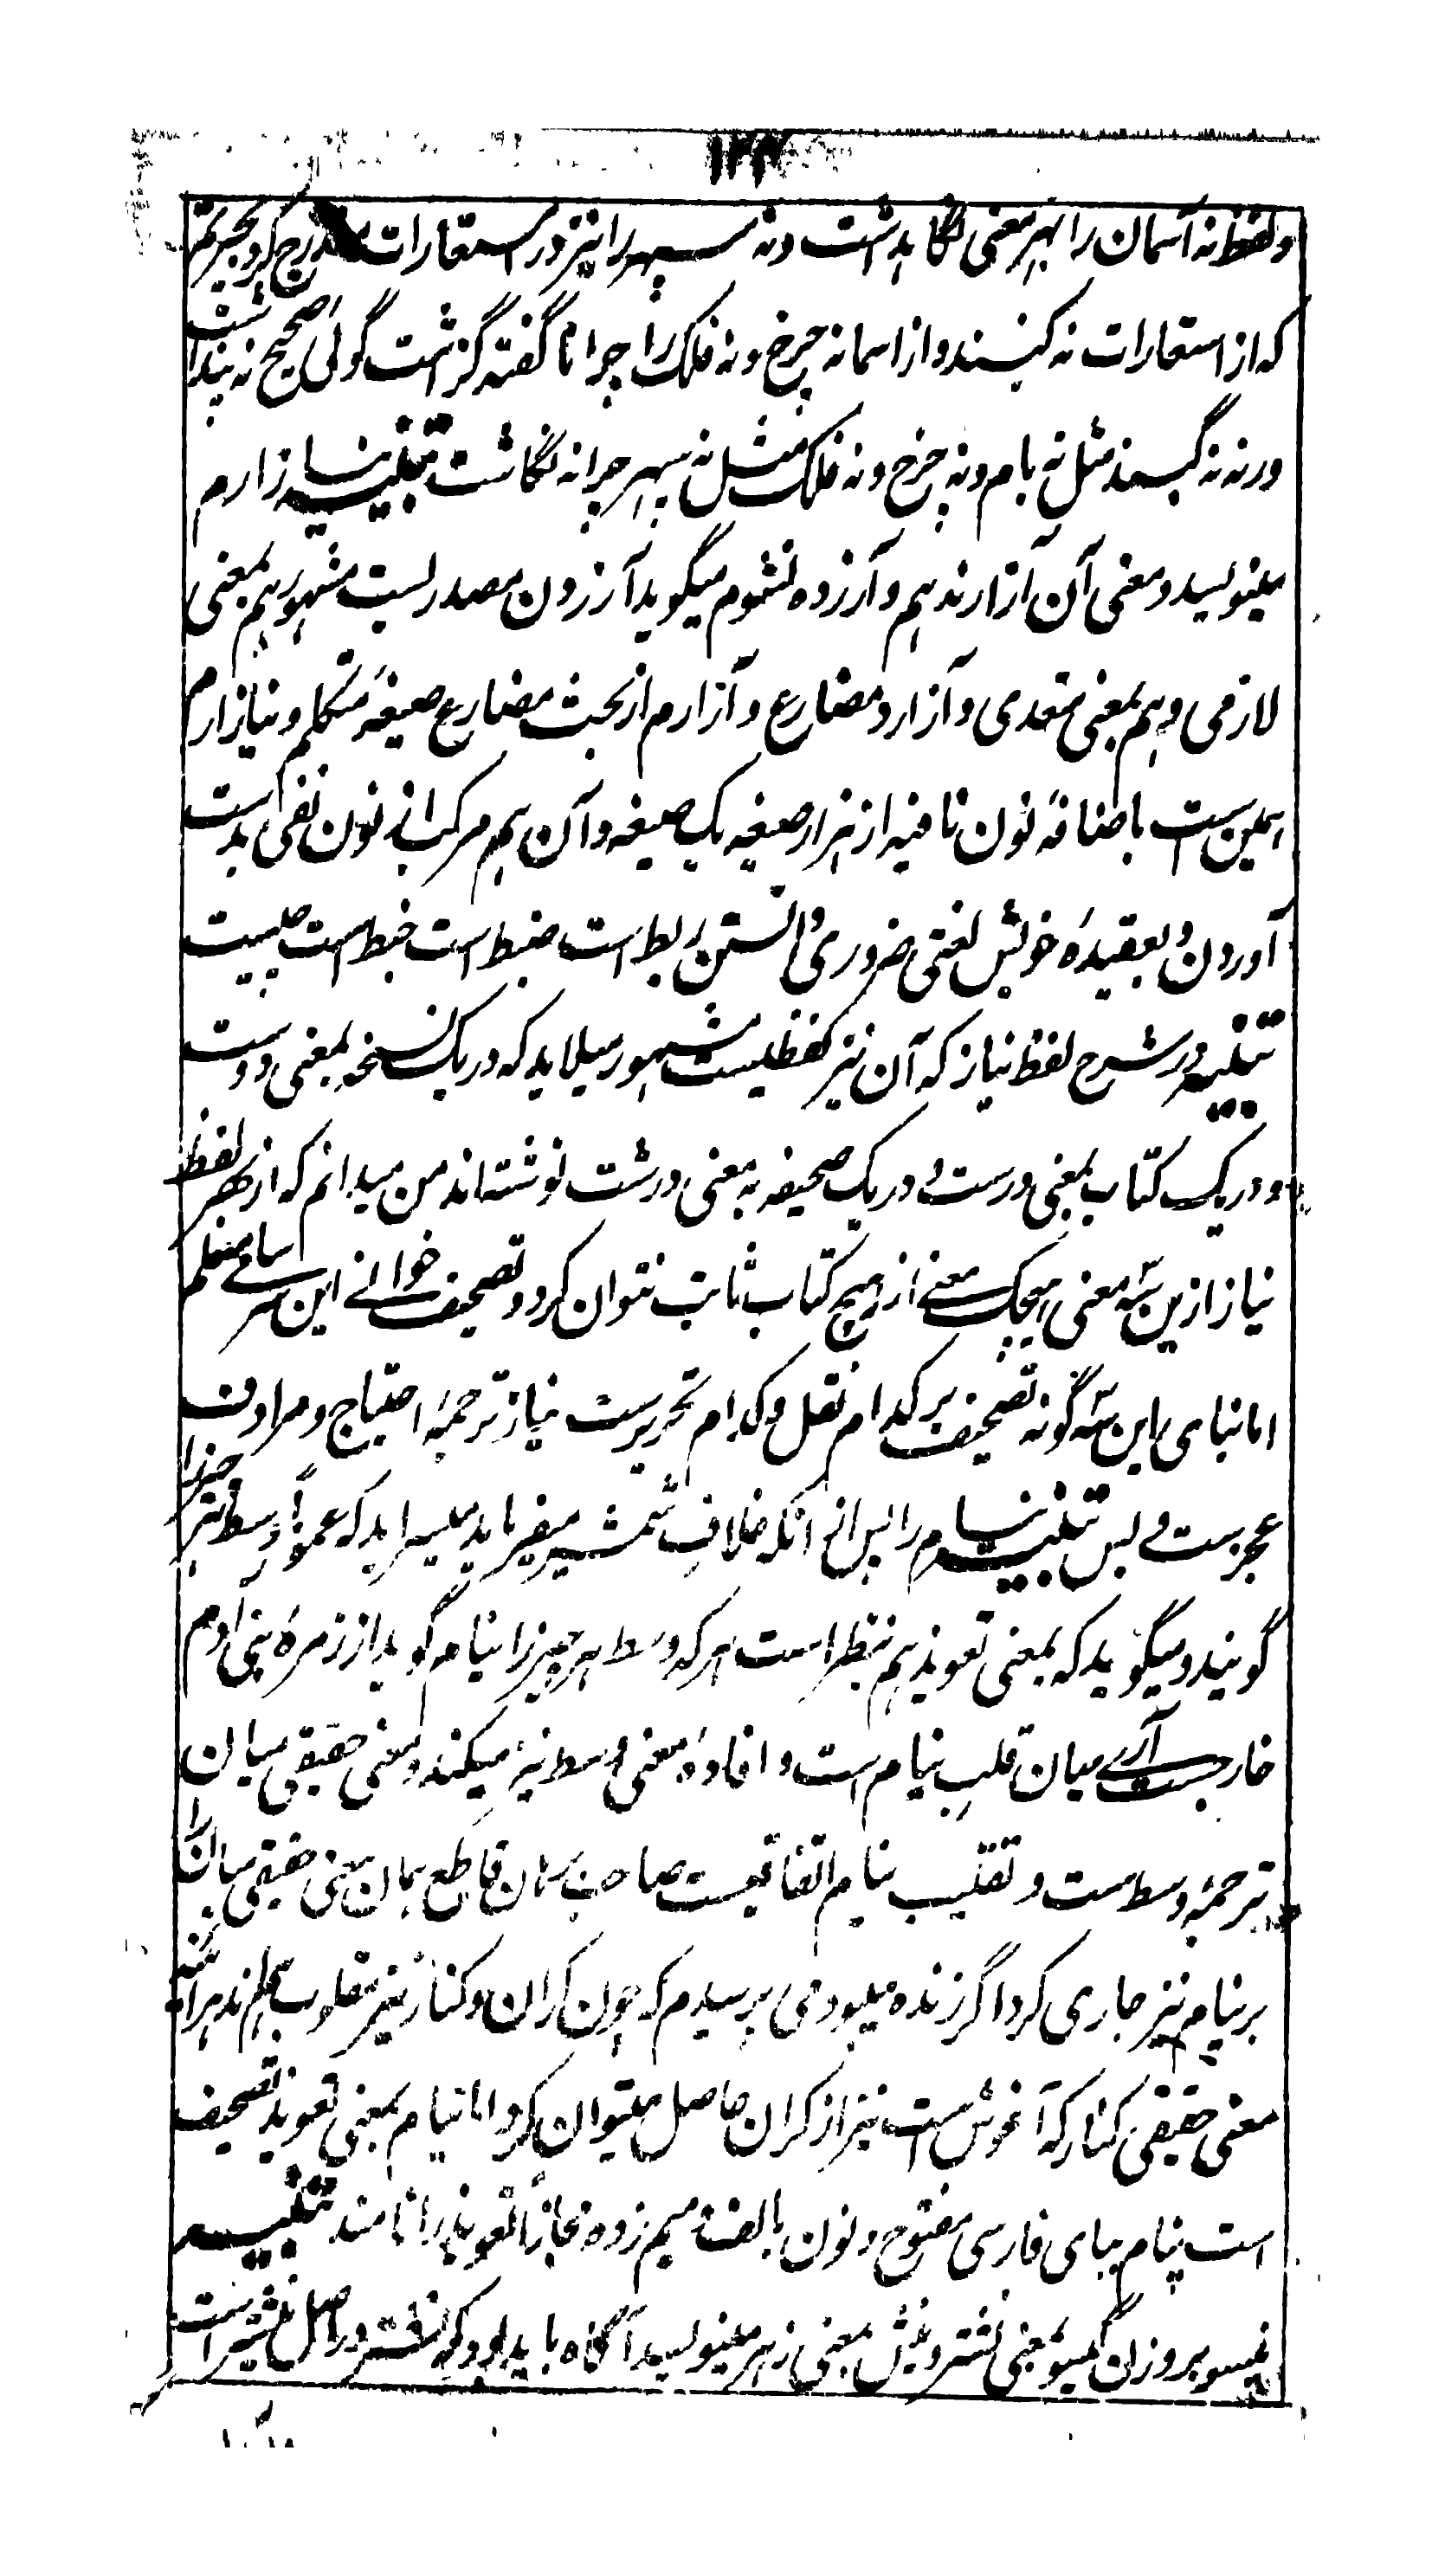 ۱۲۳
ولفظ نه آسمان را بهر معنی نگاہداشت ونه سپهر را نیز در استعارات درج کرد بحیرتم
که از استعارات نه گنبد و از اسما نه چرخ ونه فلک را چرا ناگفته گزاشت گوئی صحیح نه پنداشت
ورنه نه گنبد مثل نه بام ونه چرخ ونه فلک مثل نه سپهر چرا نه نگاشت تنبیه نیازارم
مینویسد ومعنی آن آزار ندهم و آزرده نشوم میگوید آزردن مصدریست مشهور هم بمعنی
لازمی وهم بمعنی متعدی و آزارد مضارع و آزارم از بحث مضارع صیغهٔ متکلم ونیازارم
همین ست باضافهٔ نون نافیه از هزار صیغه یک صیغه و آن هم مرکب از نون نفی بدست
آوردن و بعقیدهٔ خویش لغتی ضروری دانستن ربط است ضبط است خبط است چیست
تنبیه در شرح لفظ نیاز که آن نیز لفظیست مشهور میلاید که در یک نسخه بمعنی دوست
و در یک کتاب بمعنی درست و در یک صحیفه به معنی درشت نوشته اند من میدانم که از بهر لفظ
نیاز ازین سه معنی هیچ یک معنے از هیچ کتاب ثابت نتوان کرد و تصحیف خوانے این سرساے مسلم
اما بنای این سه گونه تصحیف بر کدام نقل و کدام تحریرست نیاز ترجمهٔ احتیاج ومرادف
عجزست و بس تنبیه نیام را پس از آنکه غلاف شمشیر میفرماید میسراید که عموماً وسط هر چیز را
گویند و میگوید که بمعنی تعویذ هم بنظر است هر که وسط هر چیز را نیام گوید از زمرهٔ بنی آدم
خارجست آرے میان قلب نیام است و افادهٔ معنی وسط نیز میکند و معنی حقیقی میان
ترجمهٔ وسط ست و تقلیب نیام اتفاقیست صاحب برهان قاطع همان معنی حقیقی میان را
بر نیام نیز جاری کرد اگر زنده میبود می پرسیدم که چون کران و کنار نیز مقلوب همند هرآئنه
معنی حقیقی کنار که آغوش ست نیز از کران حاصل میتوان کرد اما نیام بمعنی تعویذ تصحیف
است پنام ببای فارسی مفتوح و نون بالف میم زده مجازاً تعویذ را نامند تنبیه
نیسو بروزن گیسو بمعنی نشتر و نیش بمعنی زهر مینویسد آگاه باید بود که نشتر در اصل نیشتر است